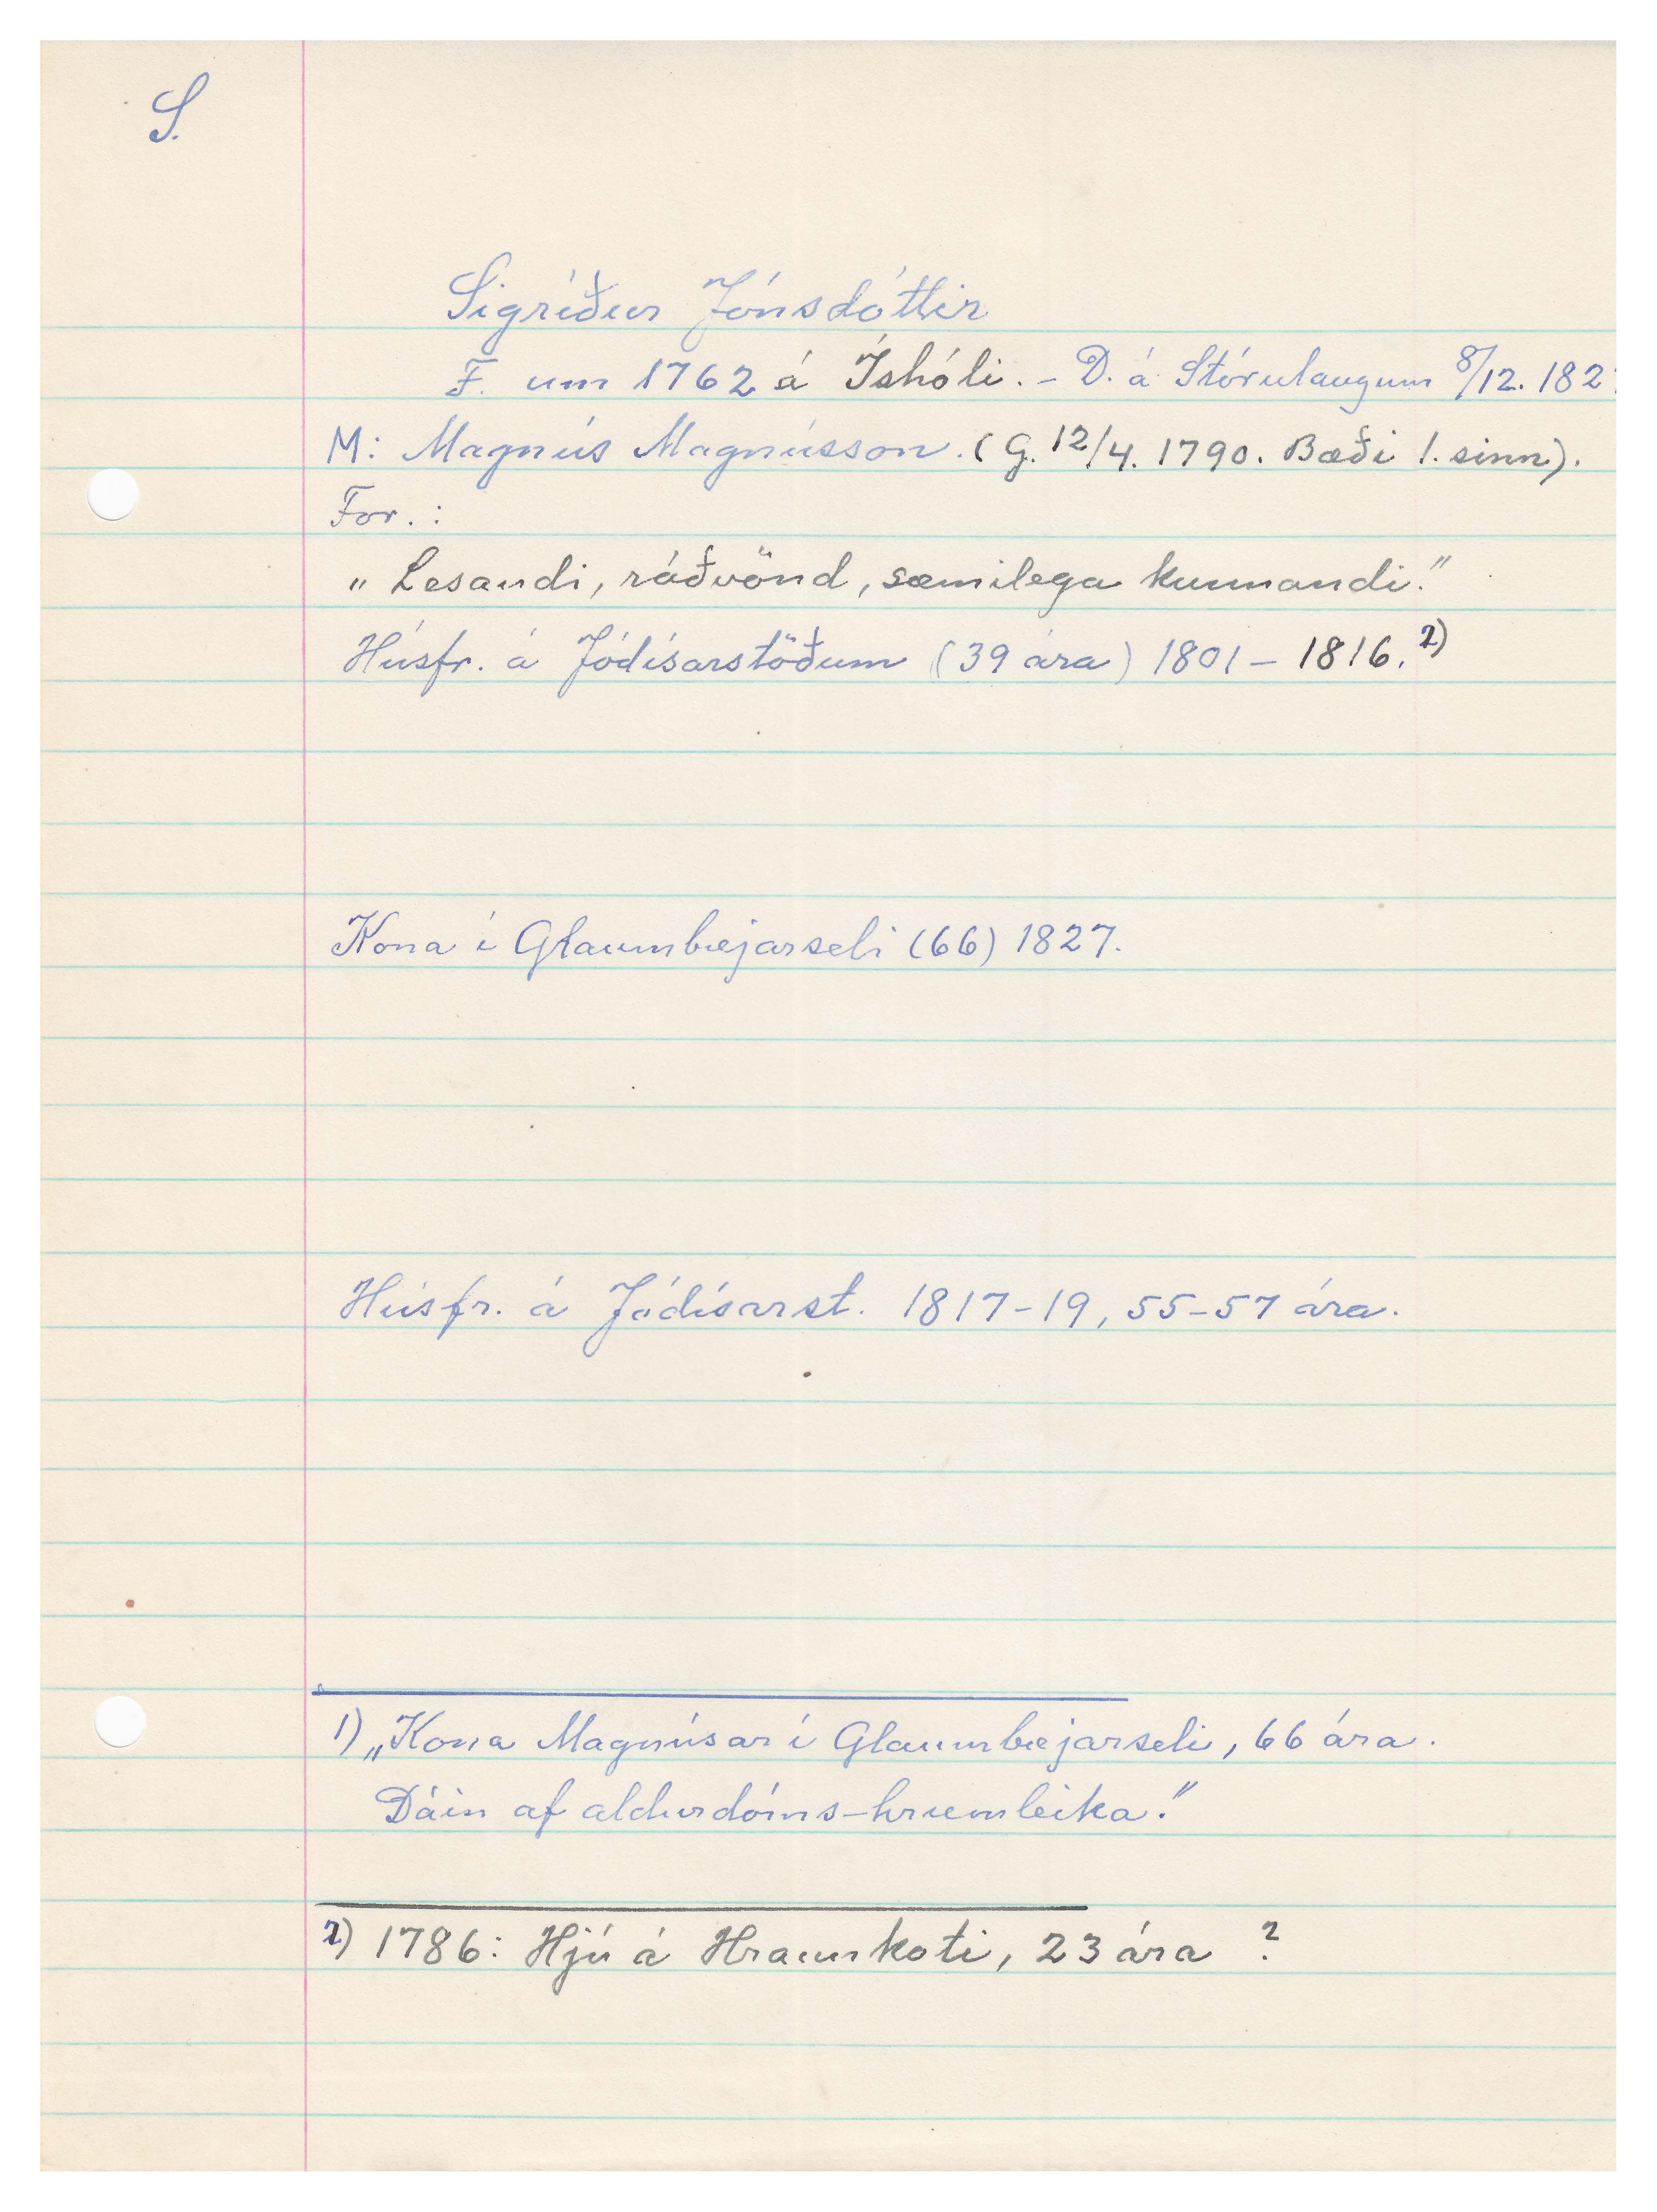 S.
Sigríður Jónsdóttir
F. um 1762 á Íshóli. - D. á Stórulaugum 8/12. 182
M: Magnús Magnússon. (G. 12/4. 1790. Bæði 1. sinn).
For. :
„Lesandi, ráðvönd, sæmilega kunnandi."
Húsfr. á Jódísarstöðum (39 ára) 1801 - 1816. 2)
Kona í Glaumbæjarseli (66) 1827.
Húsfr. á Jódísarst. 1817-19, 55-57 ára.
1) „Kona Magnúsar í Glaumbæjarseli, 66 ára.
Dáin af aldurdóms-hrumleika."
2) 1786: Hjú á Hraunkoti, 23 ára ?